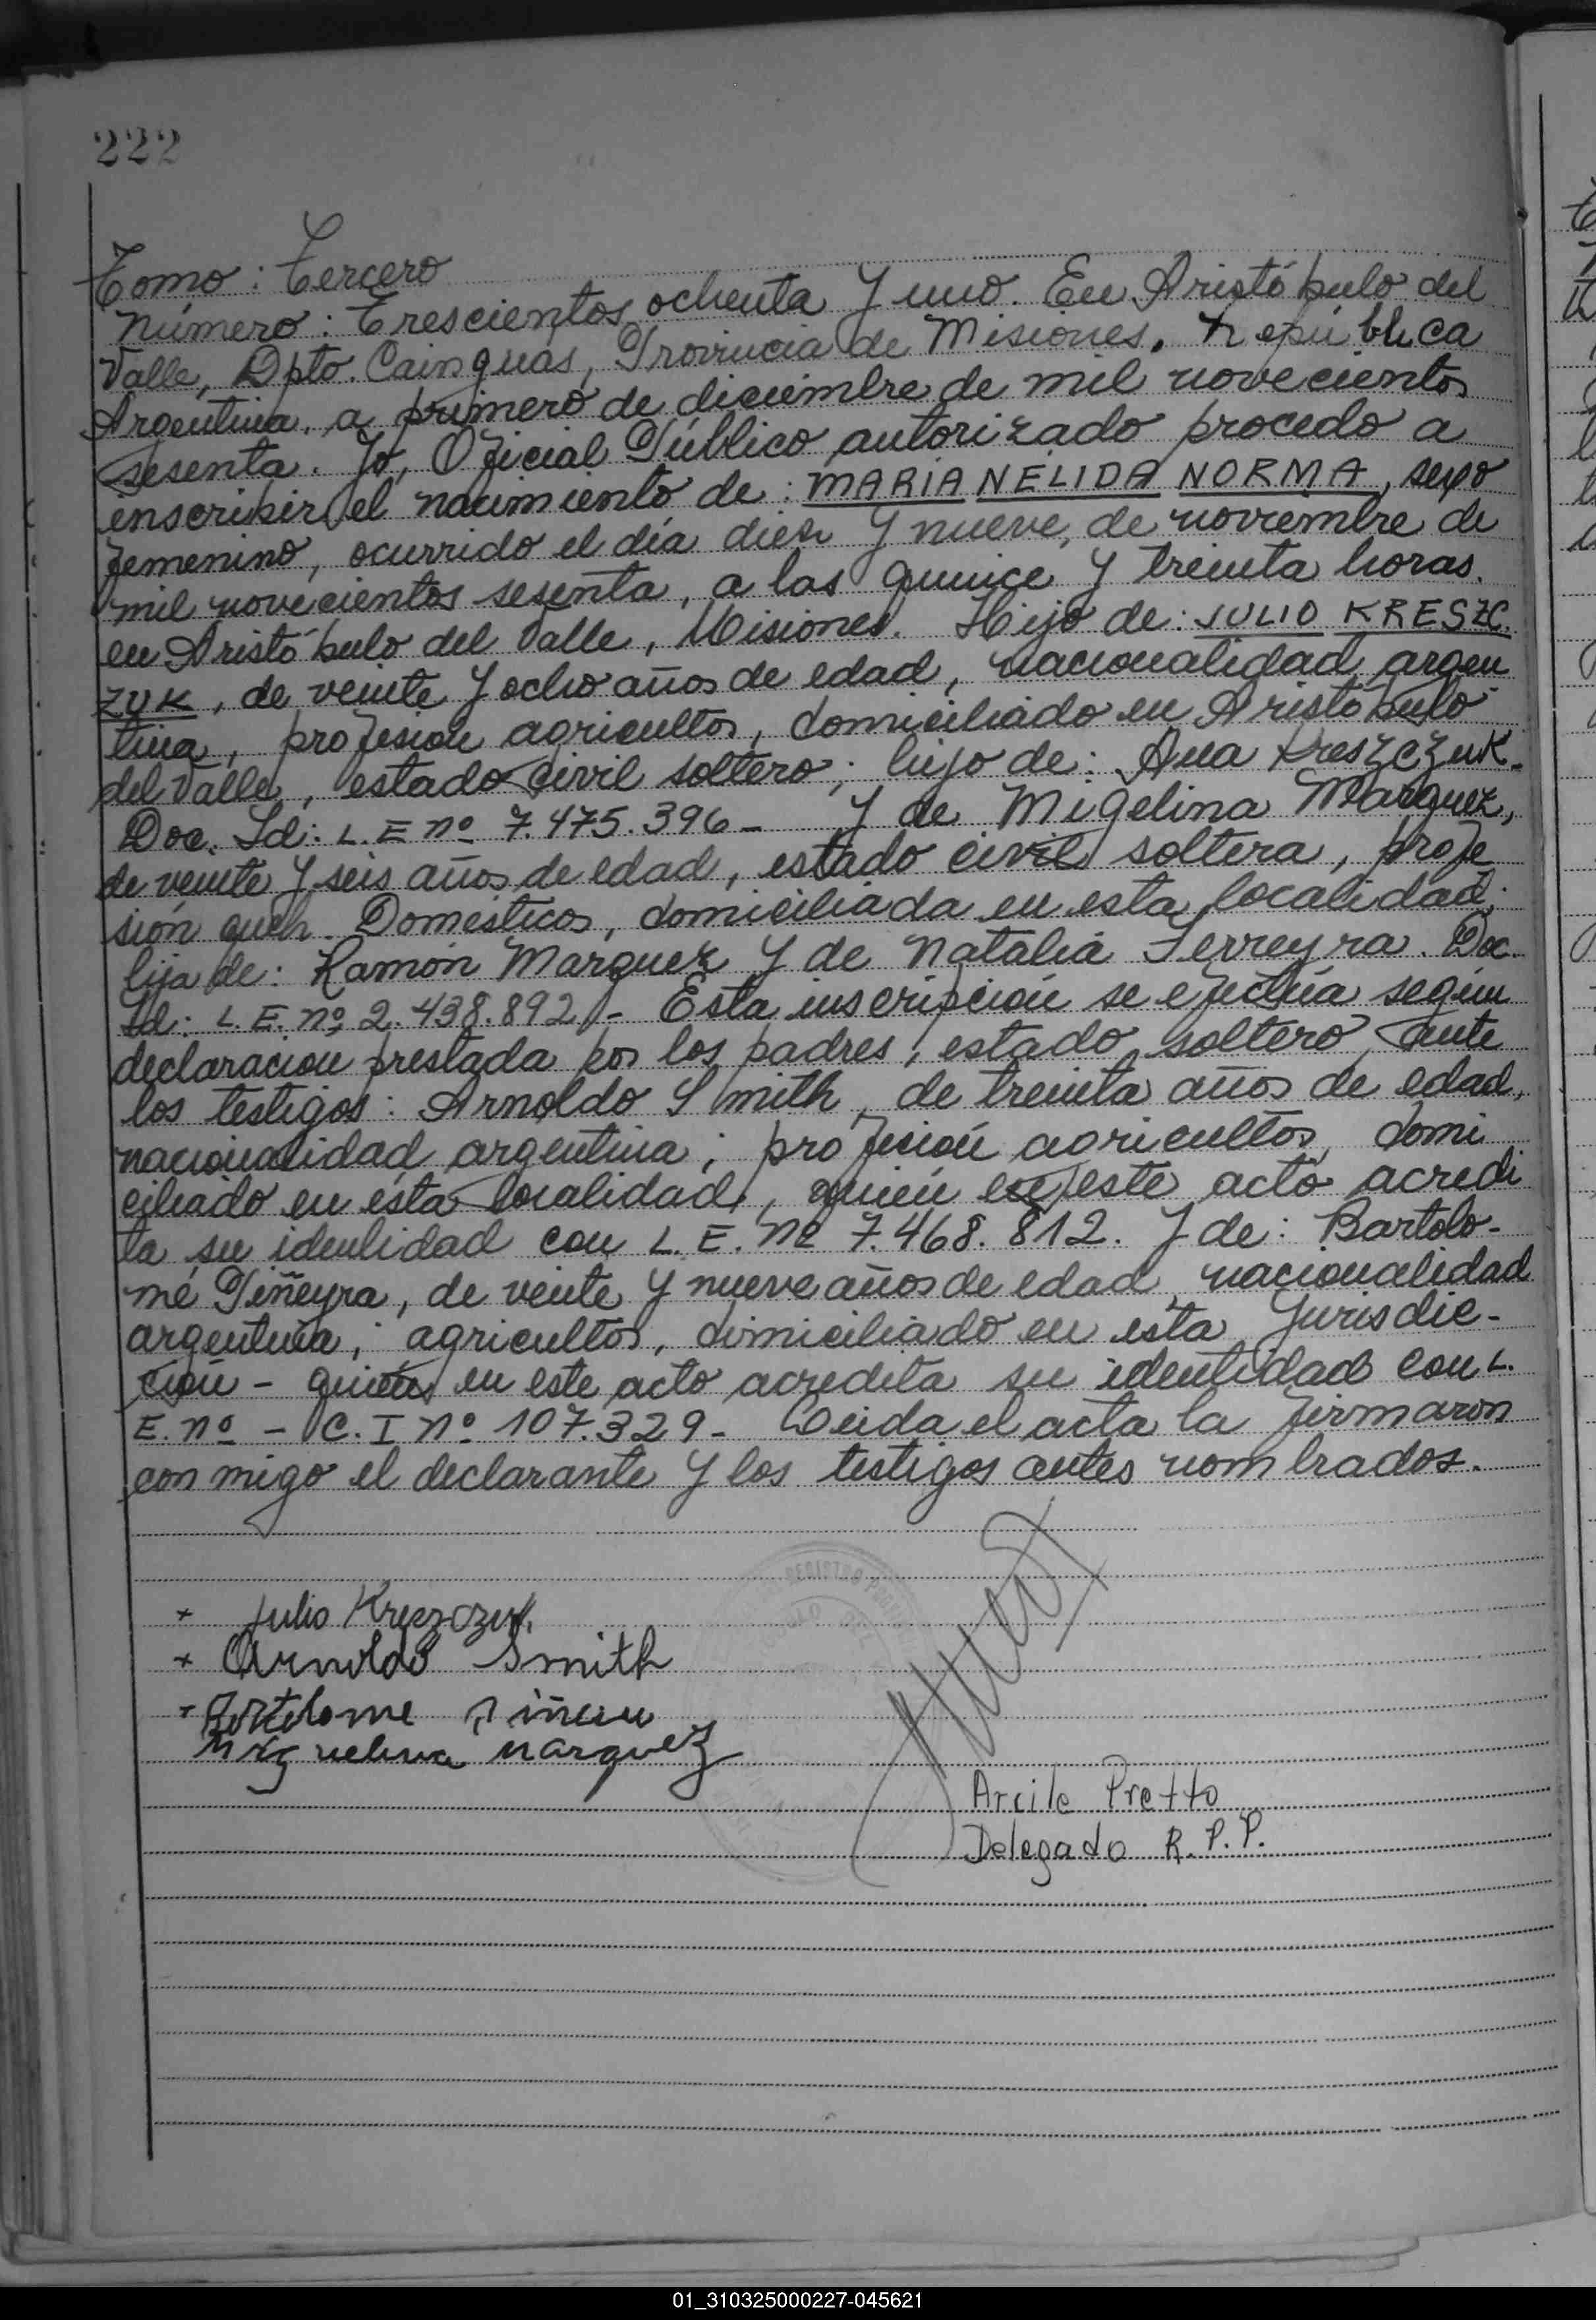 222
Tomo: Tercero
Número: Trescientos ochenta y uno. En Aristóbulo del
Valle, Dpto. Cainguás, Provincia de Misiones. República
Argentina, a primero de diciembre de mil novecientos
sesenta. Yo, Oficial Público autorizado procedo a
inscribir el nacimiento de: MARIA NELIDA NORMA, sexo
femenino, ocurrido el día diez y nueve, de noviembre de
mil novecientos sesenta, a las quince y treinta horas.
en Aristóbulo del Valle, Misiones. Hijo de: JULIO KRESZC
ZUK, de veinte y ocho años de edad, nacionalidad argen
tina, profesion agricultor, domiciliado en Aristóbulo
del Valle, estado civil soltero; hijo de: Ana Kreszczuk-
Doc. Id: L. E nº 7.475.396- y de Migelina Marquez,
de veinte y seis años de edad, estado civil soltera, profe
sión queh. Domésticos, domiciliada en esta localidad;
hija de: Ramón Marquez y de Natalia Ferreyra. Doc.
Id: L. E. nº 2.438.892- Esta inscripción se efectúa según
declaracion prestada por los padres, estado soltero, ante
los testigos: Arnoldo Smith, de treinta años de edad,
nacionalidad argentina; profesión agricultor, domi
ciliado en ésta localidad, quién en este acto acredi
ta su identidad con L. E. Nº 7.468.812. y de: Bartolo-
mé Piñeyra, de veinte y nueve años de edad, nacionalidad
argentina; agricultor, domiciliado en esta Jurisdic-
ción - quién en este acto acredita su identidad con L.
E. nº - C. I nº 107.329- Leida el acta la firmaron
con migo el declarante y los testigos antes nombrados.
+ Julio Kreszczuk
+ Arnoldo Smith
+ Bartolome
Miguelina Marquez
Arcile Pretto
Delegado R. P. P.
01_310325000227-045621